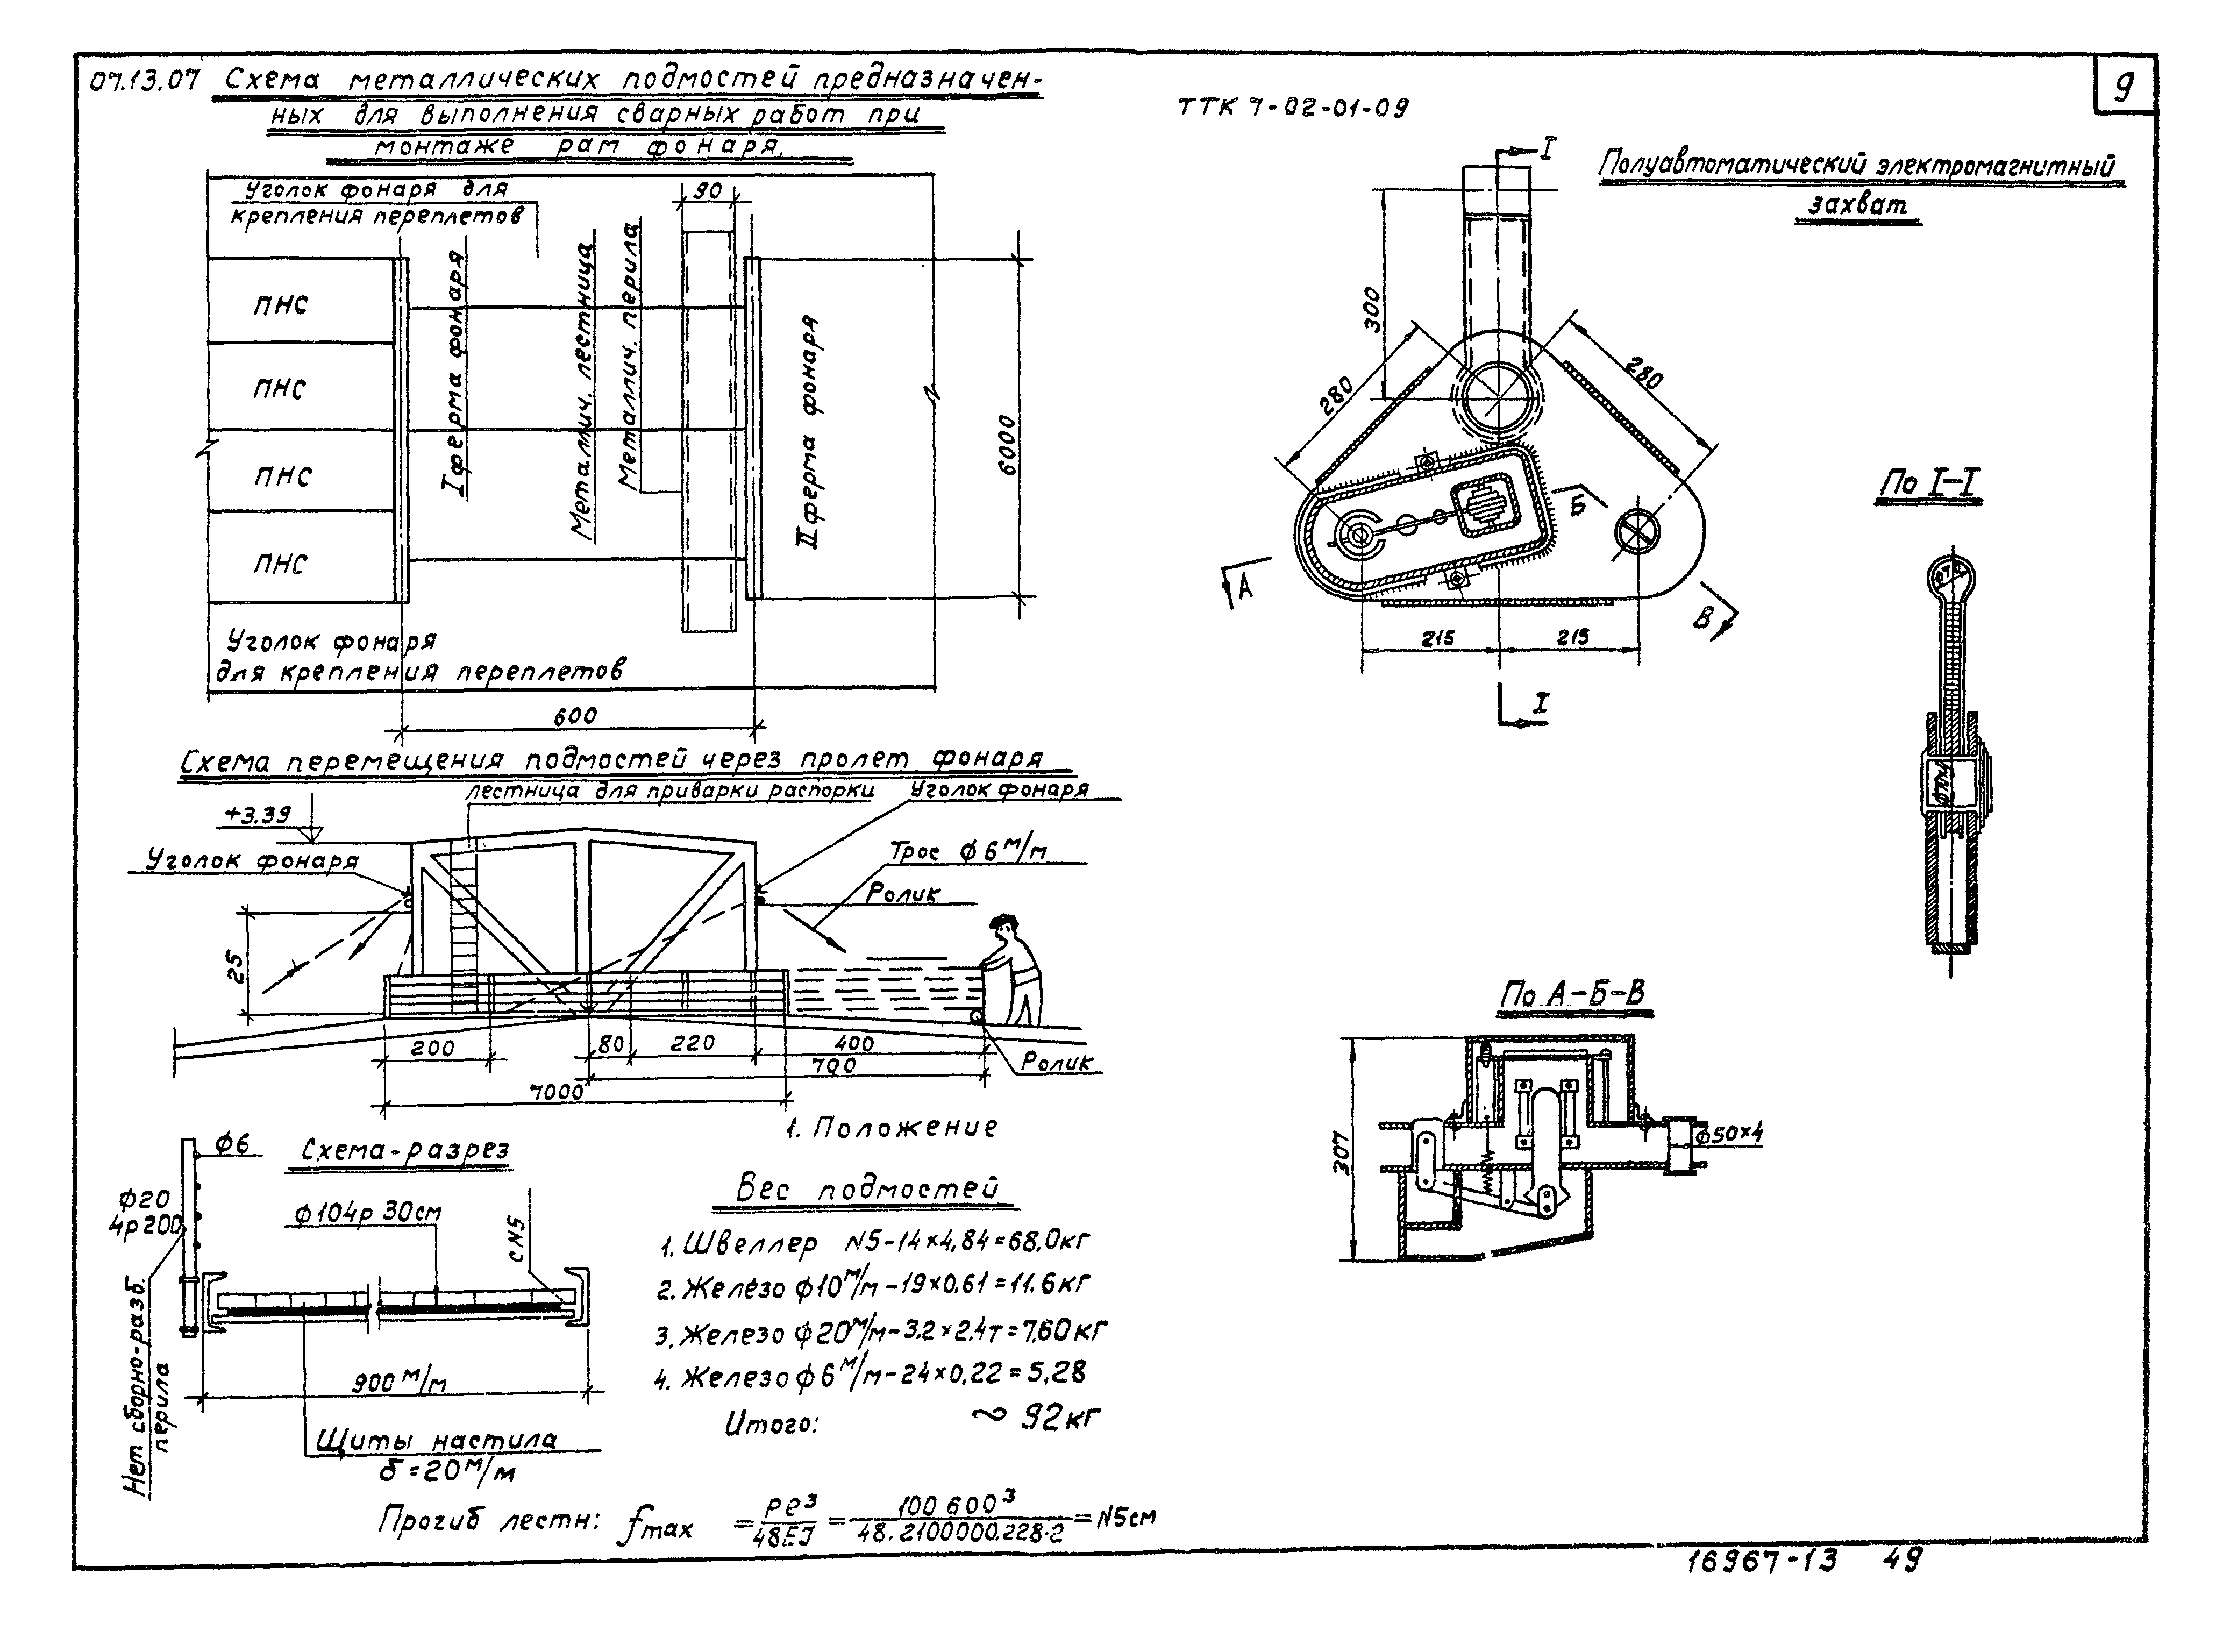 07.13.07 Схема металлических подмостей предназначен-
ных для выполнения сварных работ при
монтаже рам фонаря.
ТТК 7-02-01-09
9
Уголок фонаря для
крепления переплетов
90
ПНС
ПНС
ПНС
ПНС
I ферма фонаря
Металлич. лестница
Металлич. перила
II ферма фонаря
6000
Уголок фонаря
для крепления переплетов
600
Схема перемещения подмостей через пролет фонаря
лестница для приварки распорки
Уголок фонаря
+3.39
Уголок фонаря
Трос ф 6 м/м
Ролик
25
200
80
220
400
700
Ролик
7000
1. Положение
Схема-разрез
ф6
ф20
4р200
ф104р 30см
с N5
Нет сборно-разб.
перила
900 м/м
Щиты настила
δ=20 м/м
Вес подмостей
1. Швеллер N5-14×4,84=68,0кг
2. Железо ф10 м/м-19×0,61=11.6кг
3. Железо ф20 м/м-3,2×2.4т=7,60кг
4. Железо ф6 м/м-24×0,22=5,28
Итого: ~ 92кг
Прогиб лестн: fmax = Pe³/48EJ = 100 600³/48.2100000.228.2 = N5см
Полуавтоматический электромагнитный
захват
I
300
280
280
Б
А
В
215
215
I
По I-I
ф70
ф70×4
По А-Б-В
307
ф50×4
16967-13 49